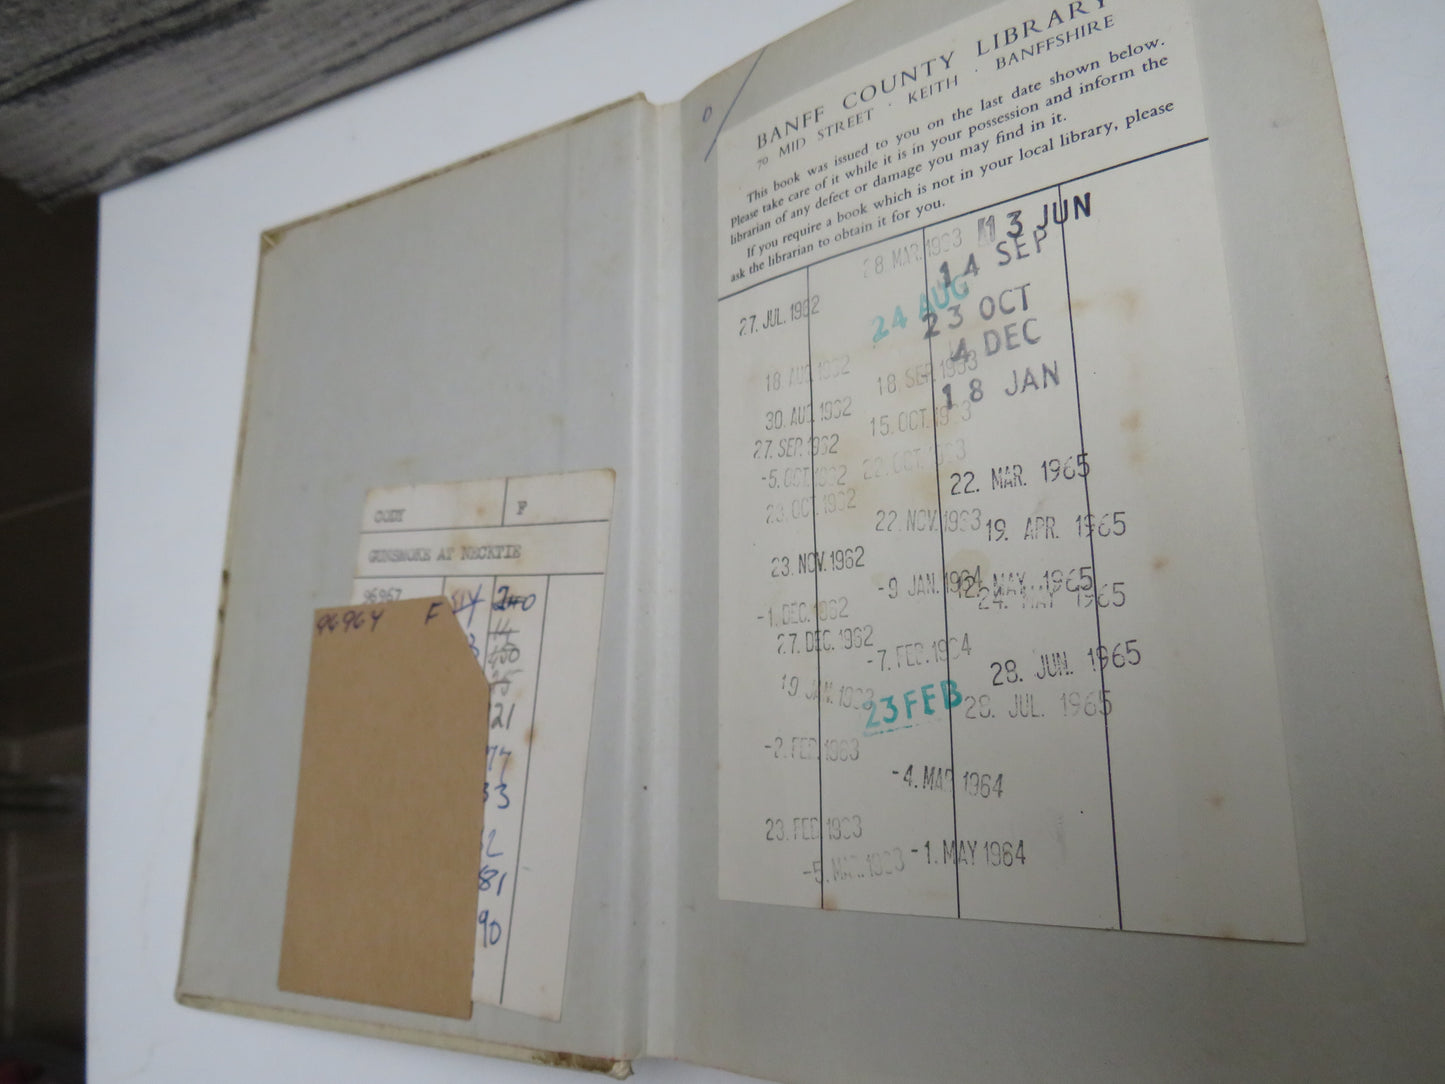 CODY F
GUNSMOKE AT NECKTIE
96967
96967 F
21
33
81
90
BANFF COUNTY LIBRARY
70 MID STREET · KEITH · BANFFSHIRE
This book was issued to you on the last date shown below.
Please take care of it while it is in your possession and inform the
librarian of any defect or damage you may find in it.
If you require a book which is not in your local library, please
ask the librarian to obtain it for you.
27. JUL. 1962
18 AUG 1962
30. AUG 1962
27. SEP. 1962
-5. OCT. 1962
23. OCT. 1962
23. NOV. 1962
-1. DEC. 1962
27. DEC. 1962
19 JAN. 1963
-2. FEB. 1963
23. FEB. 1963
-5. MAR. 1963
28. MAR. 1963
24 AUG
18. SEP. 1963
15. OCT. 1963
22. OCT. 1963
22. NOV. 1963
-9 JAN. 1964
-7. FEB. 1964
23 FEB
-4. MAR 1964
-1. MAY 1964
13 JUN
14 SEP
23 OCT
4 DEC
18 JAN
22. MAR. 1965
19. APR. 1965
12. MAY 1965
24. MAY 1965
28. JUN. 1965
28. JUL. 1965